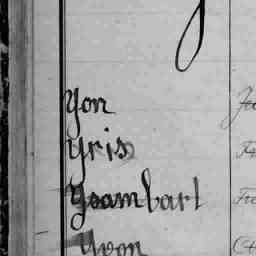 Yon
Yris
Ysambart
Yvon